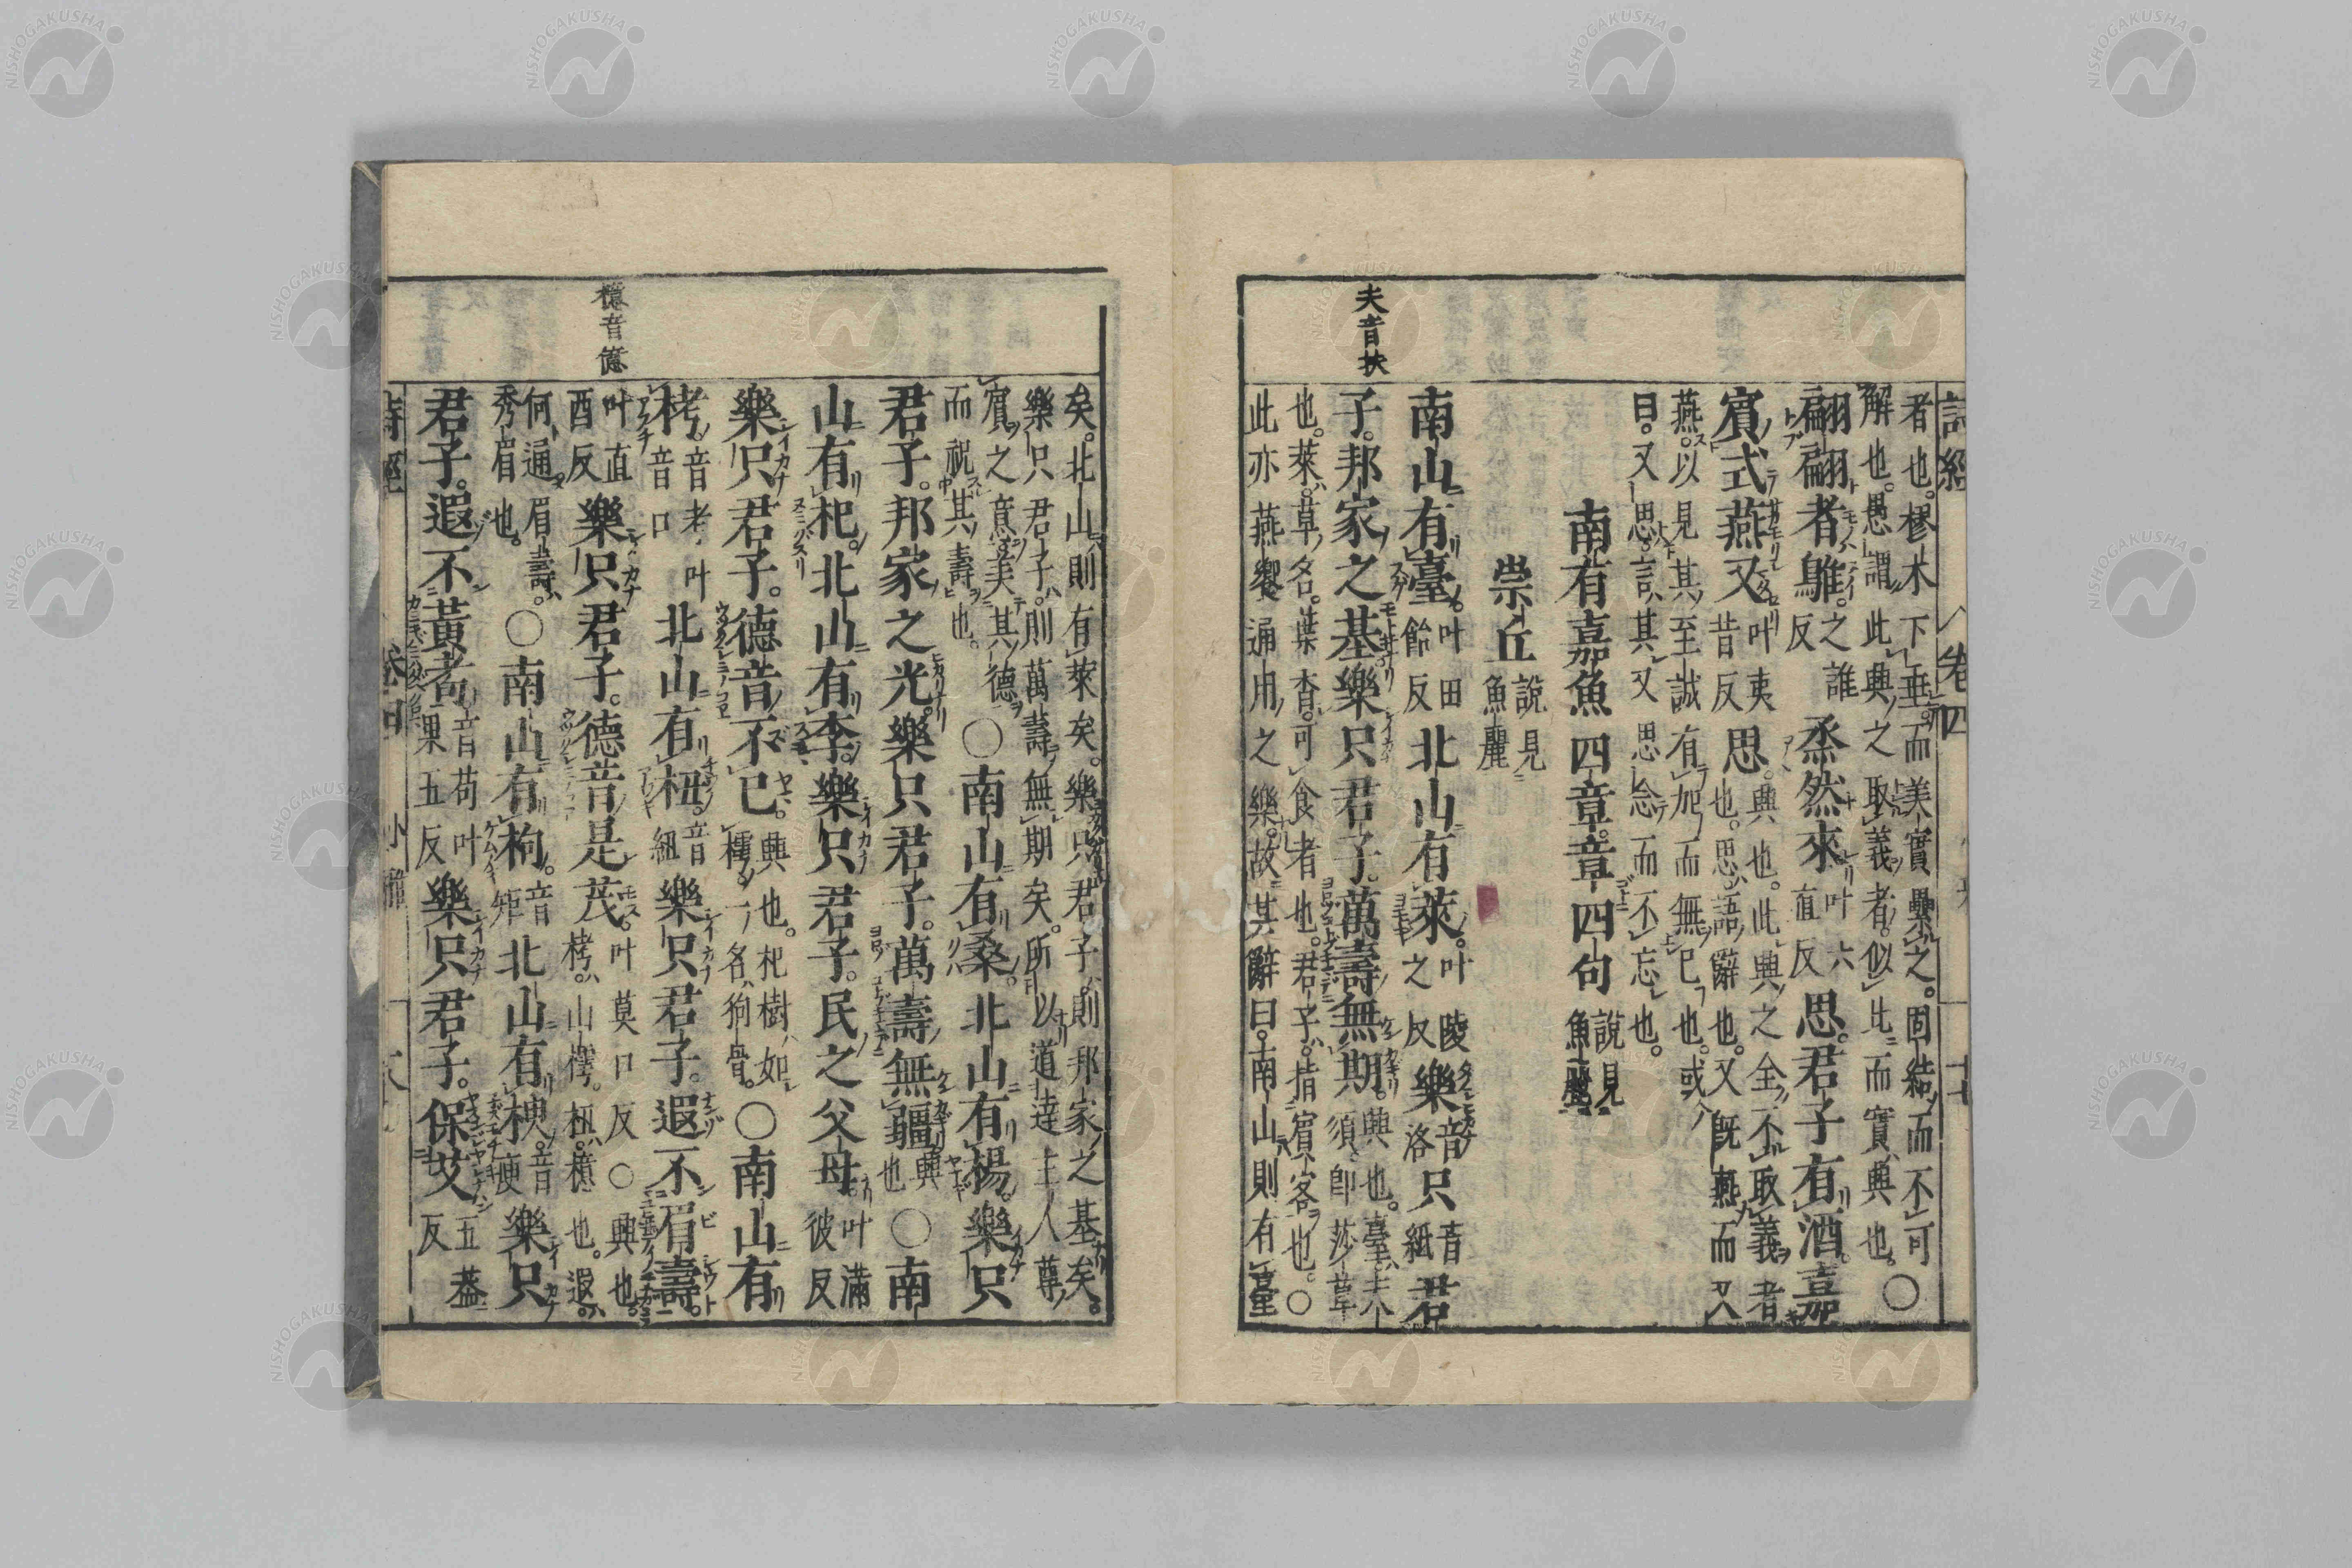 詩經 卷四
者也。樛木下垂而美實纍之。固結而不可
解也。愚謂此興之取義者。似比而實興也。○
翩翩者鵻。之誰反烝然來叶六直反思。君子有酒。嘉
賓式燕又叶夷昔反思。興也。此興之全不取義者也。思語辭也。又既燕而又
燕。以見其至誠有加而無已也。或
曰。又思。言其又思念而不忘也。
南有嘉魚四章章四句說見魚麗
崇丘說見魚麗
南山有臺。叶田飴反北山有萊。叶陵之反樂音洛只音紙君
子。邦家之基樂只君子。萬壽無期。興也。臺夫須。即莎草
也。萊。草名。葉香。可食者也。君子。指賓客也。○
此亦燕饗通用之樂。故其辭曰。南山則有臺
夫音扶
矣。北山則有萊矣。樂只君子。則邦家之基矣。
樂只君子。則萬壽無期矣。所以道達主人尊
賓之意。美其德
而祝其壽也。○南山有桑。北山有楊。樂只
君子。邦家之光。樂只君子。萬壽無疆興也○南
山有杞。北山有李。樂只君子。民之父母。叶滿彼反
樂只君子。德音不已。興也。杞樹如樗。一名狗骨。○南山有
栲。音考叶音口北山有杻。音紐樂只君子。遐不眉壽。
叶直酉反樂只君子。德音是茂。叶莫口反○興也。栲。山樗。杻。檍也。遐。
何通。眉壽。秀眉也。○南山有枸。音矩北山有楰。音庾樂只
君子。遐不黃耇。音苟叶果五反樂只君子。保艾五蓋反
檍音億
詩經 卷四 小雅